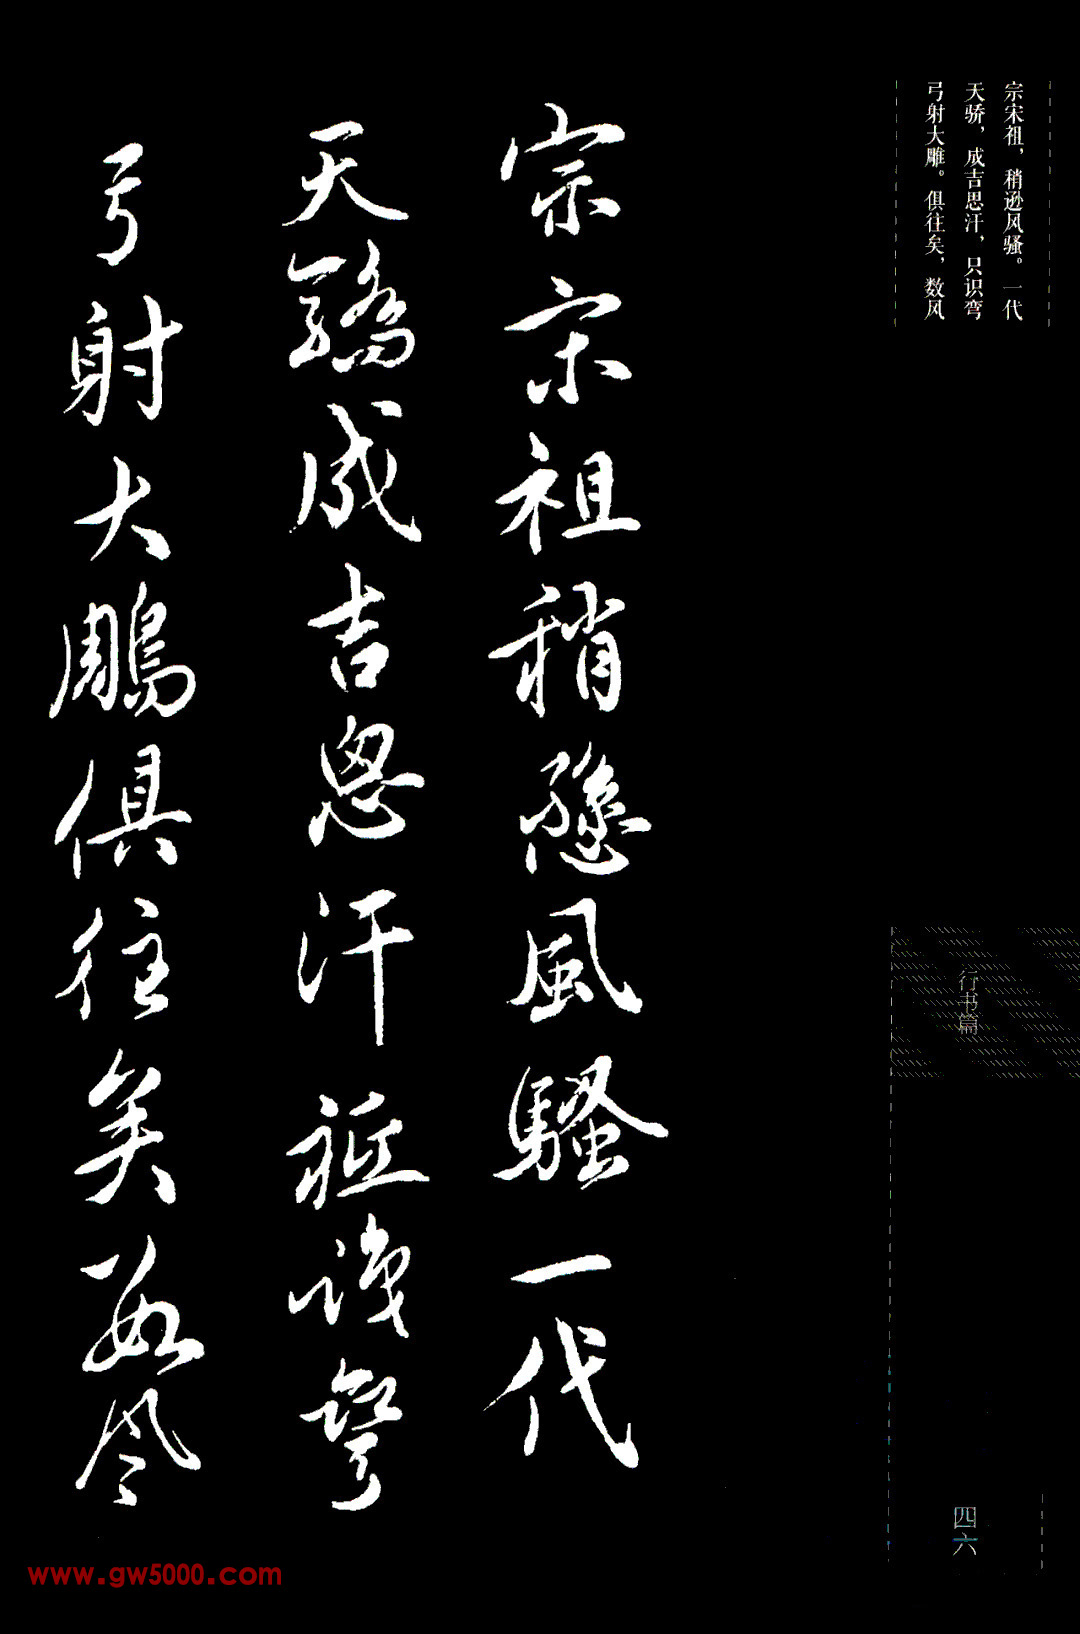 宗宋祖，稍逊风骚。一代
天骄，成吉思汗，只识弯
弓射大雕。俱往矣，数风
宗宋祖稍遜風騷一代
天驕成吉思汗祗識彎
弓射大鵰俱往矣数风
行书篇
四六
www.gw5000.com